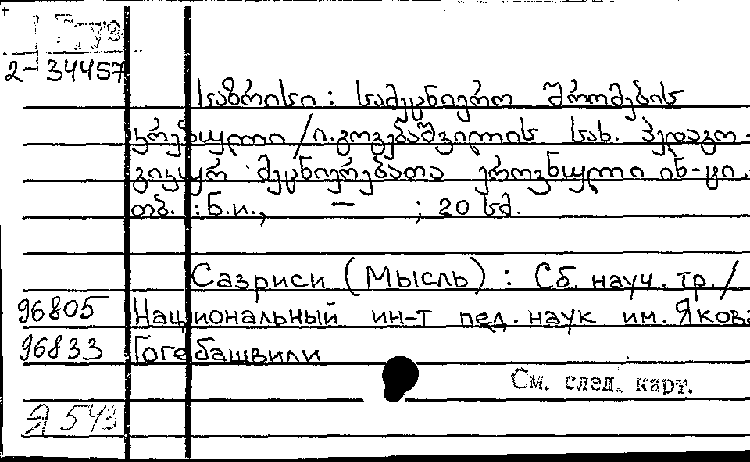 Груз
2-34457
საზრისი : სამეცნიერო შრომების
კრებული / ი. გოგებაშვილის სახ. პედაგო-
გიკურ მეცნიერებათა ეროვნული ინ-ტი.
თბ. : ნ.ი., – ; 20 სმ.
Сазриси (Мысль) : Сб. науч. тр. /
96805 Национальный ин-т пед. наук им. Якова
96833 Гогебашвили
См. след. карт.
Я 543